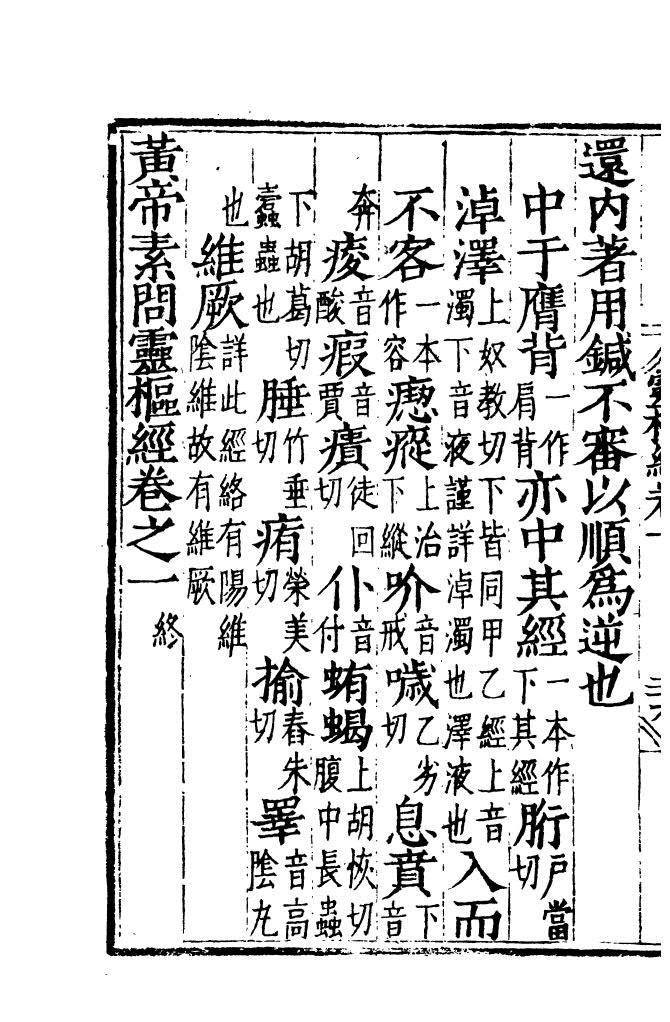 還内著用鍼不審以順爲逆也
中于膺背一作肩背亦中其經一本作下其經胻戶當切
淖澤上奴教切下皆同甲乙經上音濁下音液謹詳淖濁也澤液也入而
不客一本作容瘛瘲上治下縱吤音戒噦乙劣切息賁下音
奔痠音酸瘕音賈㿉徒回切仆音付蛕蝎上胡恢切腹中長蟲
下胡葛切蠹蟲也腄竹垂切痏榮美切揄舂朱切睪音高陰丸
也維厥詳此經絡有陽維陰維故有維厥
黃帝素問靈樞經卷之一終